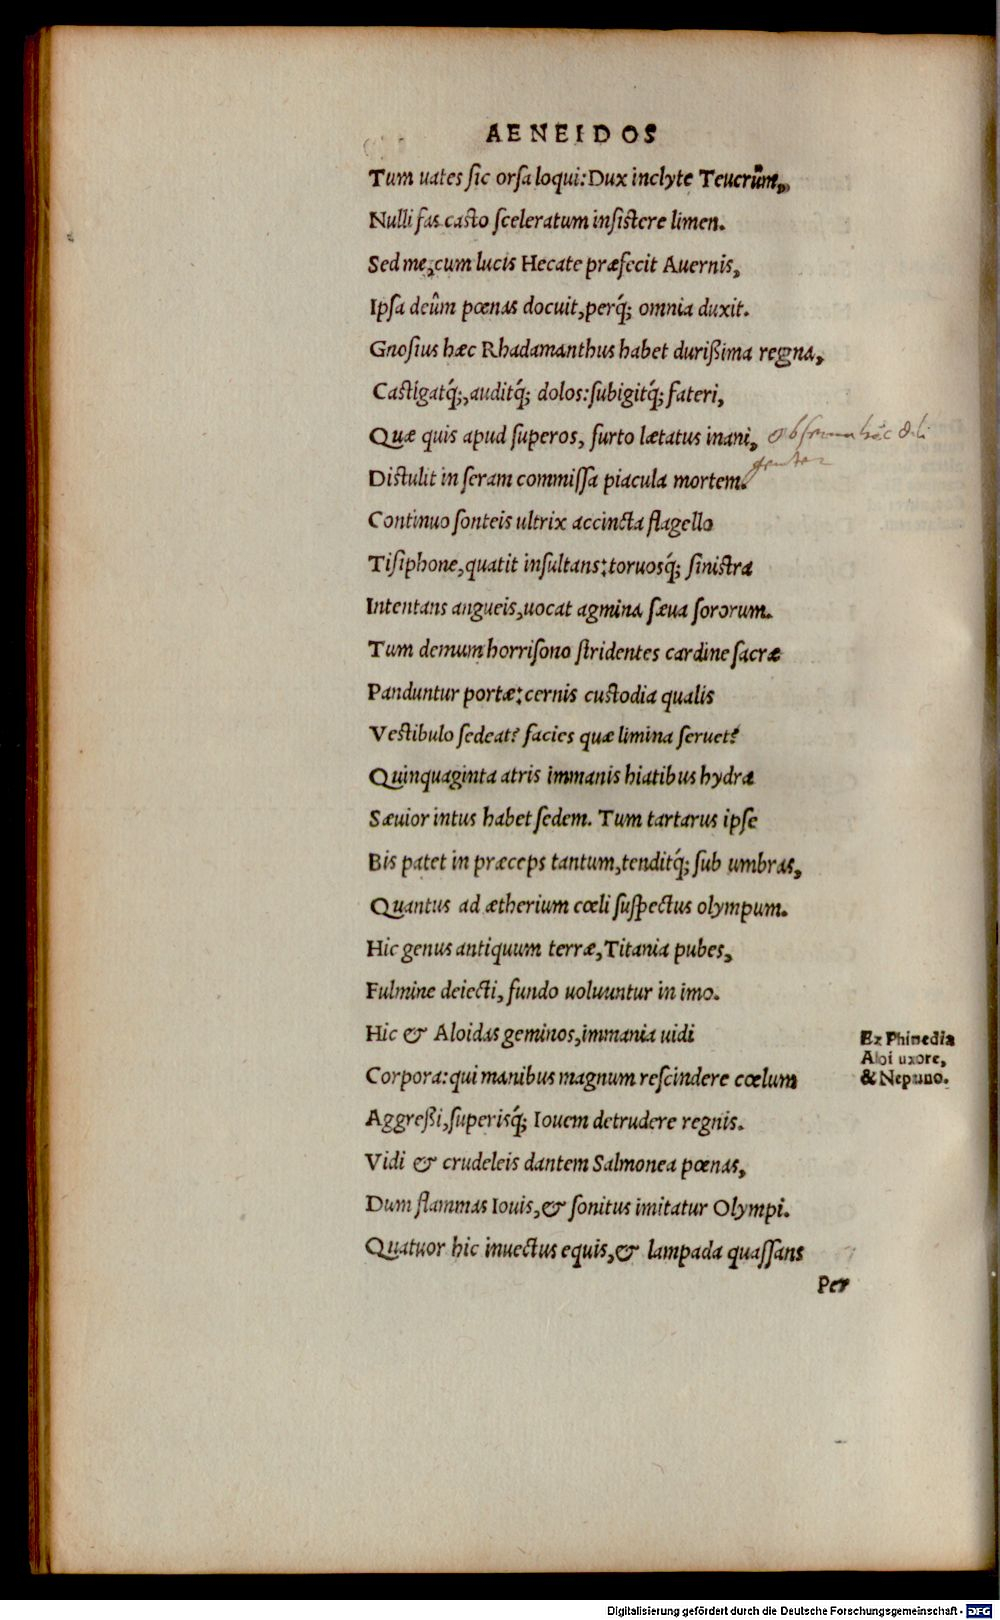 AENEIDOS
Tum uates sic orsa loqui: Dux inclyte Teucrûm,
Nulli fas casto sceleratum insistere limen.
Sed me, cum lucis Hecate præfecit Auernis,
Ipsa deûm pœnas docuit, perq́; omnia duxit.
Gnosius hæc Rhadamanthus habet durißima regna,
Castigatq́;, auditq́; dolos: subigitq́; fateri,
Quæ quis apud superos, furto lætatus inani,
Distulit in seram commissa piacula mortem.
Continuo sonteis ultrix accincta flagello
Tisiphone, quatit insultans: toruosq́; sinistra
Intentans angueis, uocat agmina sæua sororum.
Tum demum horrisono stridentes cardine sacræ
Panduntur portæ: cernis custodia qualis
Vestibulo sedeat? facies quæ limina seruet?
Quinquaginta atris immanis hiatibus hydra
Sæuior intus habet sedem. Tum tartarus ipse
Bis patet in præceps tantum, tenditq́; sub umbras,
Quantus ad ætherium cœli suspectus olympum.
Hic genus antiquum terræ, Titania pubes,
Fulmine deiecti, fundo uoluuntur in imo.
Hic & Aloidas geminos, immania uidi
Corpora: qui manibus magnum rescindere cœlum
Aggreßi, superisq́; Iouem detrudere regnis.
Vidi & crudeleis dantem Salmonea pœnas,
Dum flammas Iouis, & sonitus imitatur Olympi.
Quatuor hic inuectus equis, & lampada quassans
Per
Ex Phinedia
Aloi uxore,
& Neptuno.
Digitalisierung gefördert durch die Deutsche Forschungsgemeinschaft - DFG